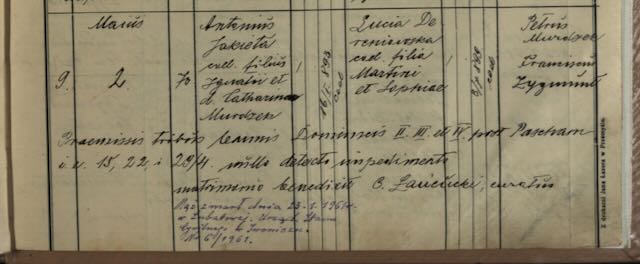 Maius
9. 2 70
Antonius
Jakieła
cael. filius
Ignatii et
d. Catharinae
Murdzek
16/I 893
cael
Lucia De
reniowska
cael. filia
Martini
et Sophiae
cael
Petrus
Murdzek
Franciscus
Zygmunt
Praemissis tribus bannis Dominicis II. III. et IV. post Pascham
i. e. 15, 22, i 29/4. nullo detecto impedimento
matrimonio benedixit curatus
Mąż zmarł dnia 23.1.1961 r.
w Lubatowej. Urząd Stanu
Cywilnego w Iwoniczu.
No 6/1961.
Z drukarni Jana Łazora w Przemyślu.